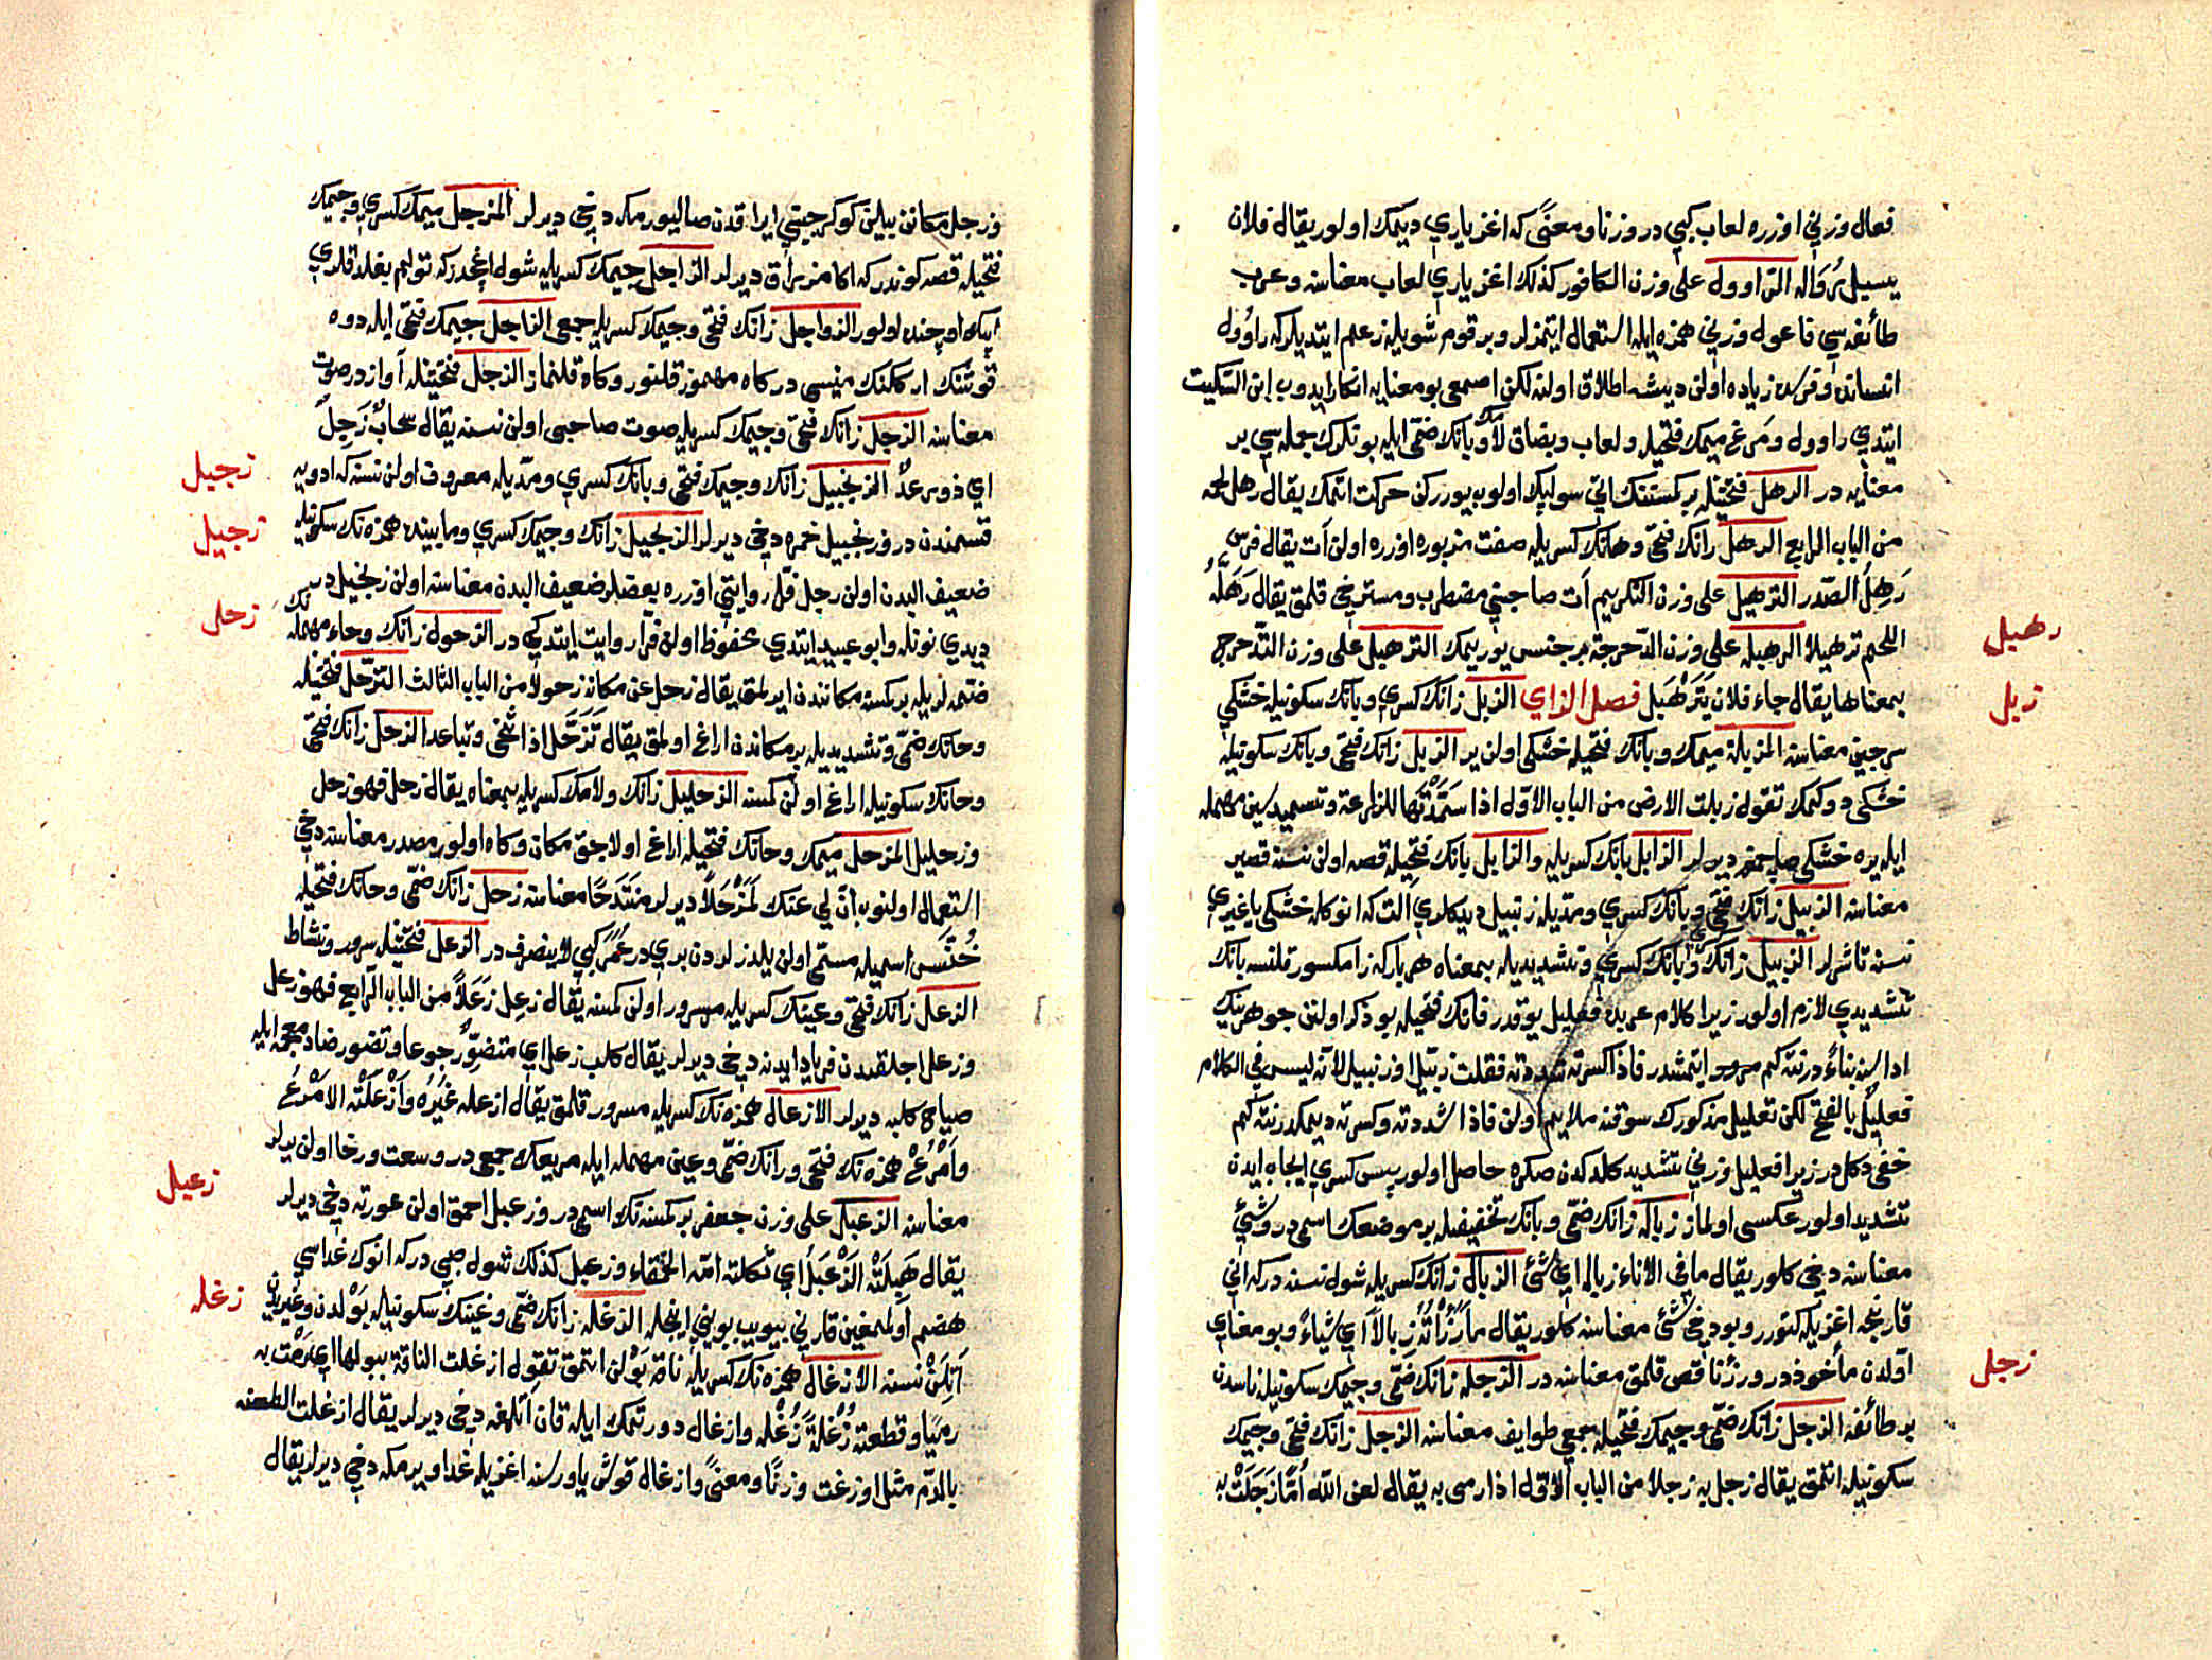 فعال وزني اوزره لعاب كبي در وزنا ومعنًى كه اغز ياري ديمك اولور يقال فلان
يسيل رُوَاله الراوول على وزن الكافور كذلك اغز ياري لعاب معناسنه وعرب
طائفه سي فاعول وزني همزه ايله استعمال ايتمزلر وبر قوم شويله زعم ايتديلر كه راوُول
انسانده وفرسده زياده اولن ديشه اطلاق اولنه لكن اصمعي بو معنايه انكار ايدوب ابن السّكيت
ايتدي راوول ومَرغ ميمك فتحيله ولعاب وبصاق بانك ضمّي ايله بو تكرك جمله سي بر
معنايه در الرهل فتحتيله بر كمسنه نك اتي سولپك اولوب يوررکن حركت اتمك يقال رهل لحمه
من الباب الرابع الرهل رانك فتحي وهانك كسريله صفت مزبوره اوزره اولن آت يقال فرس
رَهِلُ الصّدر الترهيل على وزن التكريم آت صاجيني مضطرب ومسترخي قلمق يقال رَهَّلَهُ
اللحم ترهيلا الرهبله على وزن الدّحرجة بر جنس يوريمك الترهبل على وزن التدحرج
رهبل
بمعناها يقال جاء فلان يَتَرَهْبَل فصل الزاي الزبل زانك كسري وبانك سكونيله خشكي
زبل
سرجين معناسنه المزبلة ميمك وبانك فتحيله خشكي اولن ير الزبل زانك فتحي وبانك سكونيله
خشكي دوكمك تقول زبلت الارض من الباب الاوّل اذا سَمَّدْتَهَا للزراعة وتسميد سين مهمله
ايله يره خشكي صاچمغه ديرلر الزابل بانك كسريله والزابل بانك فتحيله قصه اولن نسنه قصير
معناسنه الزبيل زانك فتحي وبانك كسري ومدّيله زنبيل ديدكلري آلت كه انوكله خشكي يا غيري
نسنه تاشرلر الزبيل زانك وبانك كسري وتشديديله بمعناه هر بار كه زا مكسور قلنسه بانك
تشديدي لازم اولور زيرا كلام عربده فعليل يوقدر فانك فتحيله بو ذكر اولنن جوهرينك
اداسنه بناءً درنته كم ايتمشدر فاذا كسرته شددته فقلت زبّيل او زنبيل لانه ليس في الكلام
فعليل بالفتح لكن تعليل مذكورك سوقنه ملايم اولن فاذا شددته وكسرته ديمكدر نته كم
خفي دكلدر زيرا فعليل وزني تشديد كلدكدن صكره حاصل اولور پس كسري ايجاب ايدن
تشديد اولور عكسي اولماز زباله زانك ضمّي وبانك تخفيفيله بر موضعك اسمي در وشئ
معناسنه دخي كلور يقال ما في الاناء زباله اي شئ الزبال زانك كسريله شول نسنه در كه اني
قارنجه اغزيله كتورر وبو دخي شئ معناسنه كلور يقال ما رَزَأْتُهُ زبالاً اي شيأ وبو معناي
اوّلدن مأخوذدر ورزأ ناقص قلمق معناسنه در الزجله زانك ضمّي وجيمك سكونيله ناسدن
زجل
بر طائفه الزجل زانك ضمّي وجيمك فتحيله جمعي طوايف معناسنه الزجل زانك فتحي وجيمك
سكونيله اتمق يقال زجل به زجلا من الباب الاوّل اذا رمى به يقال لعن الله أُمًّا زَجَلَتْ به
وزجل مكانن بيلين كوكرجيني ايراقدن صاليورمكه دخي ديرلر المزجل ميمك كسري وجيمك
فتحيله قصه كوندر كه اكا مزراق ديرلر الزاجل جيمك كسريله شول اغجدر كه تولم بغلدقلري
ايپك اوجنده اولور الزواجل زانك فتحي وجيمك كسريله جمعي الزاجل جيمك فتحي ايله دوه
قوشنك اركگنك منيسي در كاه مهموز قلنور وكاه قلنماز الزجل فتحتيله آوازدر صوت
معناسنه الزجل زانك فتحي وجيمك كسريله صوت صاحبي اولن نسنه يقال سحابٌ زَجِلٌ
اي ذو رعدٌ الزنجبيل زانك وجيمك فتحي وبانك كسري ومدّيله معروف اولن نسنه كه ادويه
زجبيل
قسمندن در وزنجبيل خمره دخي ديرلر الزنجيل زانك وجيمك كسري وما بينده همزه نك سكونيله
زجيل
ضعيف البدن اولن رجل فرّا روايتي اوزره بعضلر ضعيف البدن معناسنه اولن زنجيل در
ديدي نونله وابو عبيد ايتدي محفوظ اولن فرا روايت ايتدكي در الزحول زانك وحاء مهمله نك
زحل
ضمّه لريله بر كمسنه مكانندن ايرلمق يقال زحل عن مكانه زحولا من الباب الثالث التزحّل فتحتيله
وحانك ضمّي وتشديديله بر مكاندن اراغ اولمق يقال تَزَحَّل اذا تنحّى وتباعد الزحل زانك فتحي
وحانك سكونيله اراغ اولن كمسنه الزحليل زانك ولامك كسريله بمعناه يقال زحل فهو زحل
وزحليل المزحل ميمك وحانك فتحيله اراغ اولاجق مكان وكاه اولور مصدر معناسنه دخي
استعمال اولنوب انّ لي عنك لَمَزْحَلاً ديرلر منتدحًا معناسنه زحل زانك ضمّي وحانك فتحيله
خُنَّس اسميله مسمّى اولن يلدزلردن بري در عُمَر كبي لا ينصرف در الزعل فتحتيله سرور ونشاط
الزعل زانك فتحي وعينك كسريله مسرور اولن كمسنه يقال زعِل زَعَلاً من الباب الرابع فهو زعل
وزعل اجلقدن فرياد ايدنه دخي ديرلر يقال كلب زعل اي متضوّر جوعا وتضوّر ضاد معجمه ايله
صياح كلبه ديرلر الازعال همزه نك كسريله مسرور قلمق يقال ازعله غَيْرُه وَاَزْعَلَتْه الاَمْرُعُ
واَمْرُعْ همزه نك فتحي ورانك ضمّي وعين مهمله ايله مريعك جمعي در وسعت ورخا اولن يرلر
معناسنه الزعبل على وزن جعفر بر كمسنه نك اسمي در وزعبل احمق اولن عورته دخي ديرلر
زعبل
يقال هَبِلَتْه الزَعْبَلُ اي ثكلته امّه الحمقاء وزعبل كذلك شول صبي در كه انوك غداسي
هضم اولمغين قارني بيويب بويني اينجله الزغله زانك ضمّي وغينك سكونيله بَوْلدن وغيريدن
زغله
آتِلَنْ نسنه الازغال همزه نك كسريله ناقه بَوْلن اتمق تقول ازغلت الناقة ببولها اي رمت به
رميًا وقطعته زُغْلةً زُغْله وازغال دورتمك ايله قان آتلمغه دخي ديرلر يقال ازغلت الطعنه
بالدّم مثل اوزغت وزنًا ومعنًى وازغال قوش ياوريسنه اغزيله غدا ويرمكه دخي ديرلر يقال